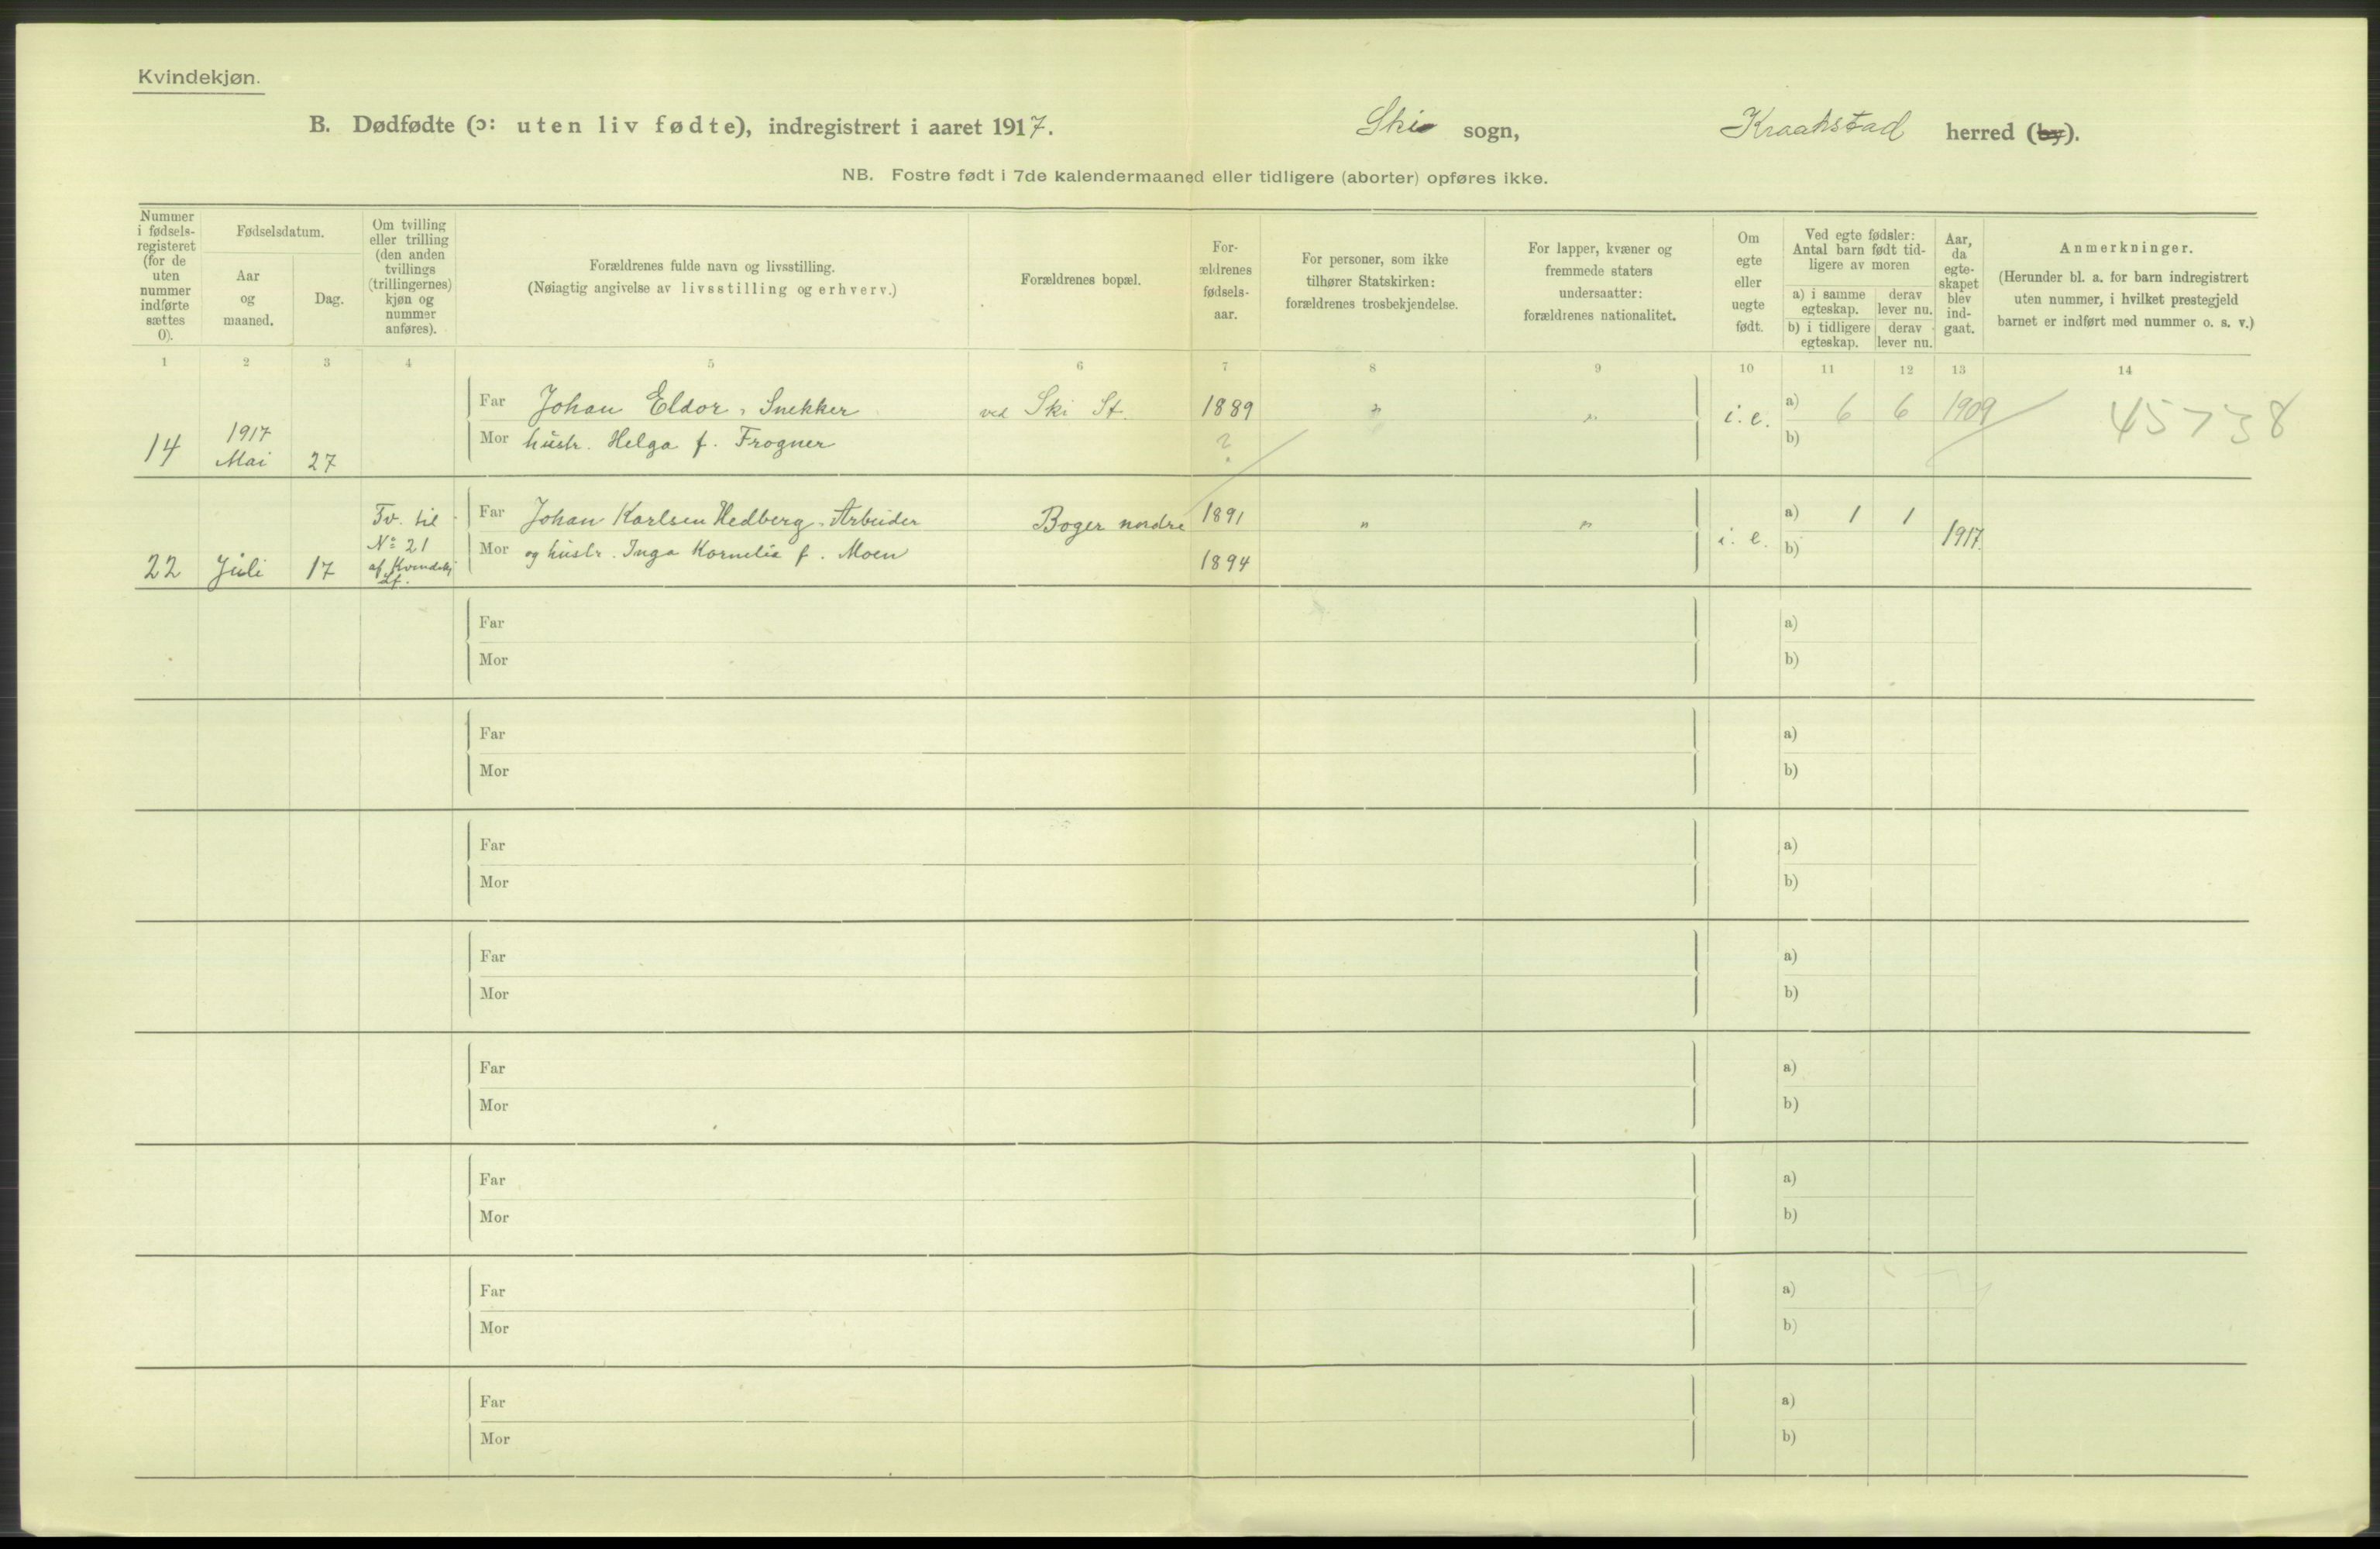 Kvindekjøn.
B. Dødfødte (ɔ: uten liv fødte), indregistrert i aaret 1917. Ski sogn, Kraakstad herred (by).
NB. Fostre født i 7de kalendermaaned eller tidligere (aborter) opføres ikke.
Nummer i fødsels-registeret (for de uten nummer indførte sættes 0).
Fødselsdatum.
Aar og maaned.
Dag.
Om tvilling eller trilling (den anden tvillings (trillingernes) kjøn og nummer anføres).
Forældrenes fulde navn og livsstilling.
(Nøiagtig angivelse av livsstilling og erhverv.)
Forældrenes bopæl.
For-ældrenes fødsels-aar.
For personer, som ikke tilhører Statskirken: forældrenes trosbekjendelse.
For lapper, kvæner og fremmede staters undersaatter: forældrenes nationalitet.
Om egte eller uegte født.
Ved egte fødsler: Antal barn født tid-ligere av moren
a) i samme egteskap. derav lever nu.
b) i tidligere egteskap. derav lever nu.
Aar, da egte-skapet blev ind-gaat.
Anmerkninger.
(Herunder bl. a. for barn indregistrert uten nummer, i hvilket prestegjeld barnet er indført med nummer o. s. v.)
1 2 3 4 5 6 7 8 9 10 11 12 13 14
Far Johan Eldor, Snekker ved Ski St. 1889 " " i. e. a) 6 6 1909 45738
14 1917 Mai 27 Mor hustr. Helga f. Frogner ? b)
Tv. til Far Johan Karlsen Hedberg, Arbeider Boger nordre 1891 " " i. e. a) 1 1 1917.
No 21 Mor og hustr. Inga Kornelia f. Moen 1894 b)
22 Juli 17 af Kvindekj
Far a)
Mor b)
Far a)
Mor b)
Far a)
Mor b)
Far a)
Mor b)
Far a)
Mor b)
Far a)
Mor b)
Far a)
Mor b)
Far a)
Mor b)